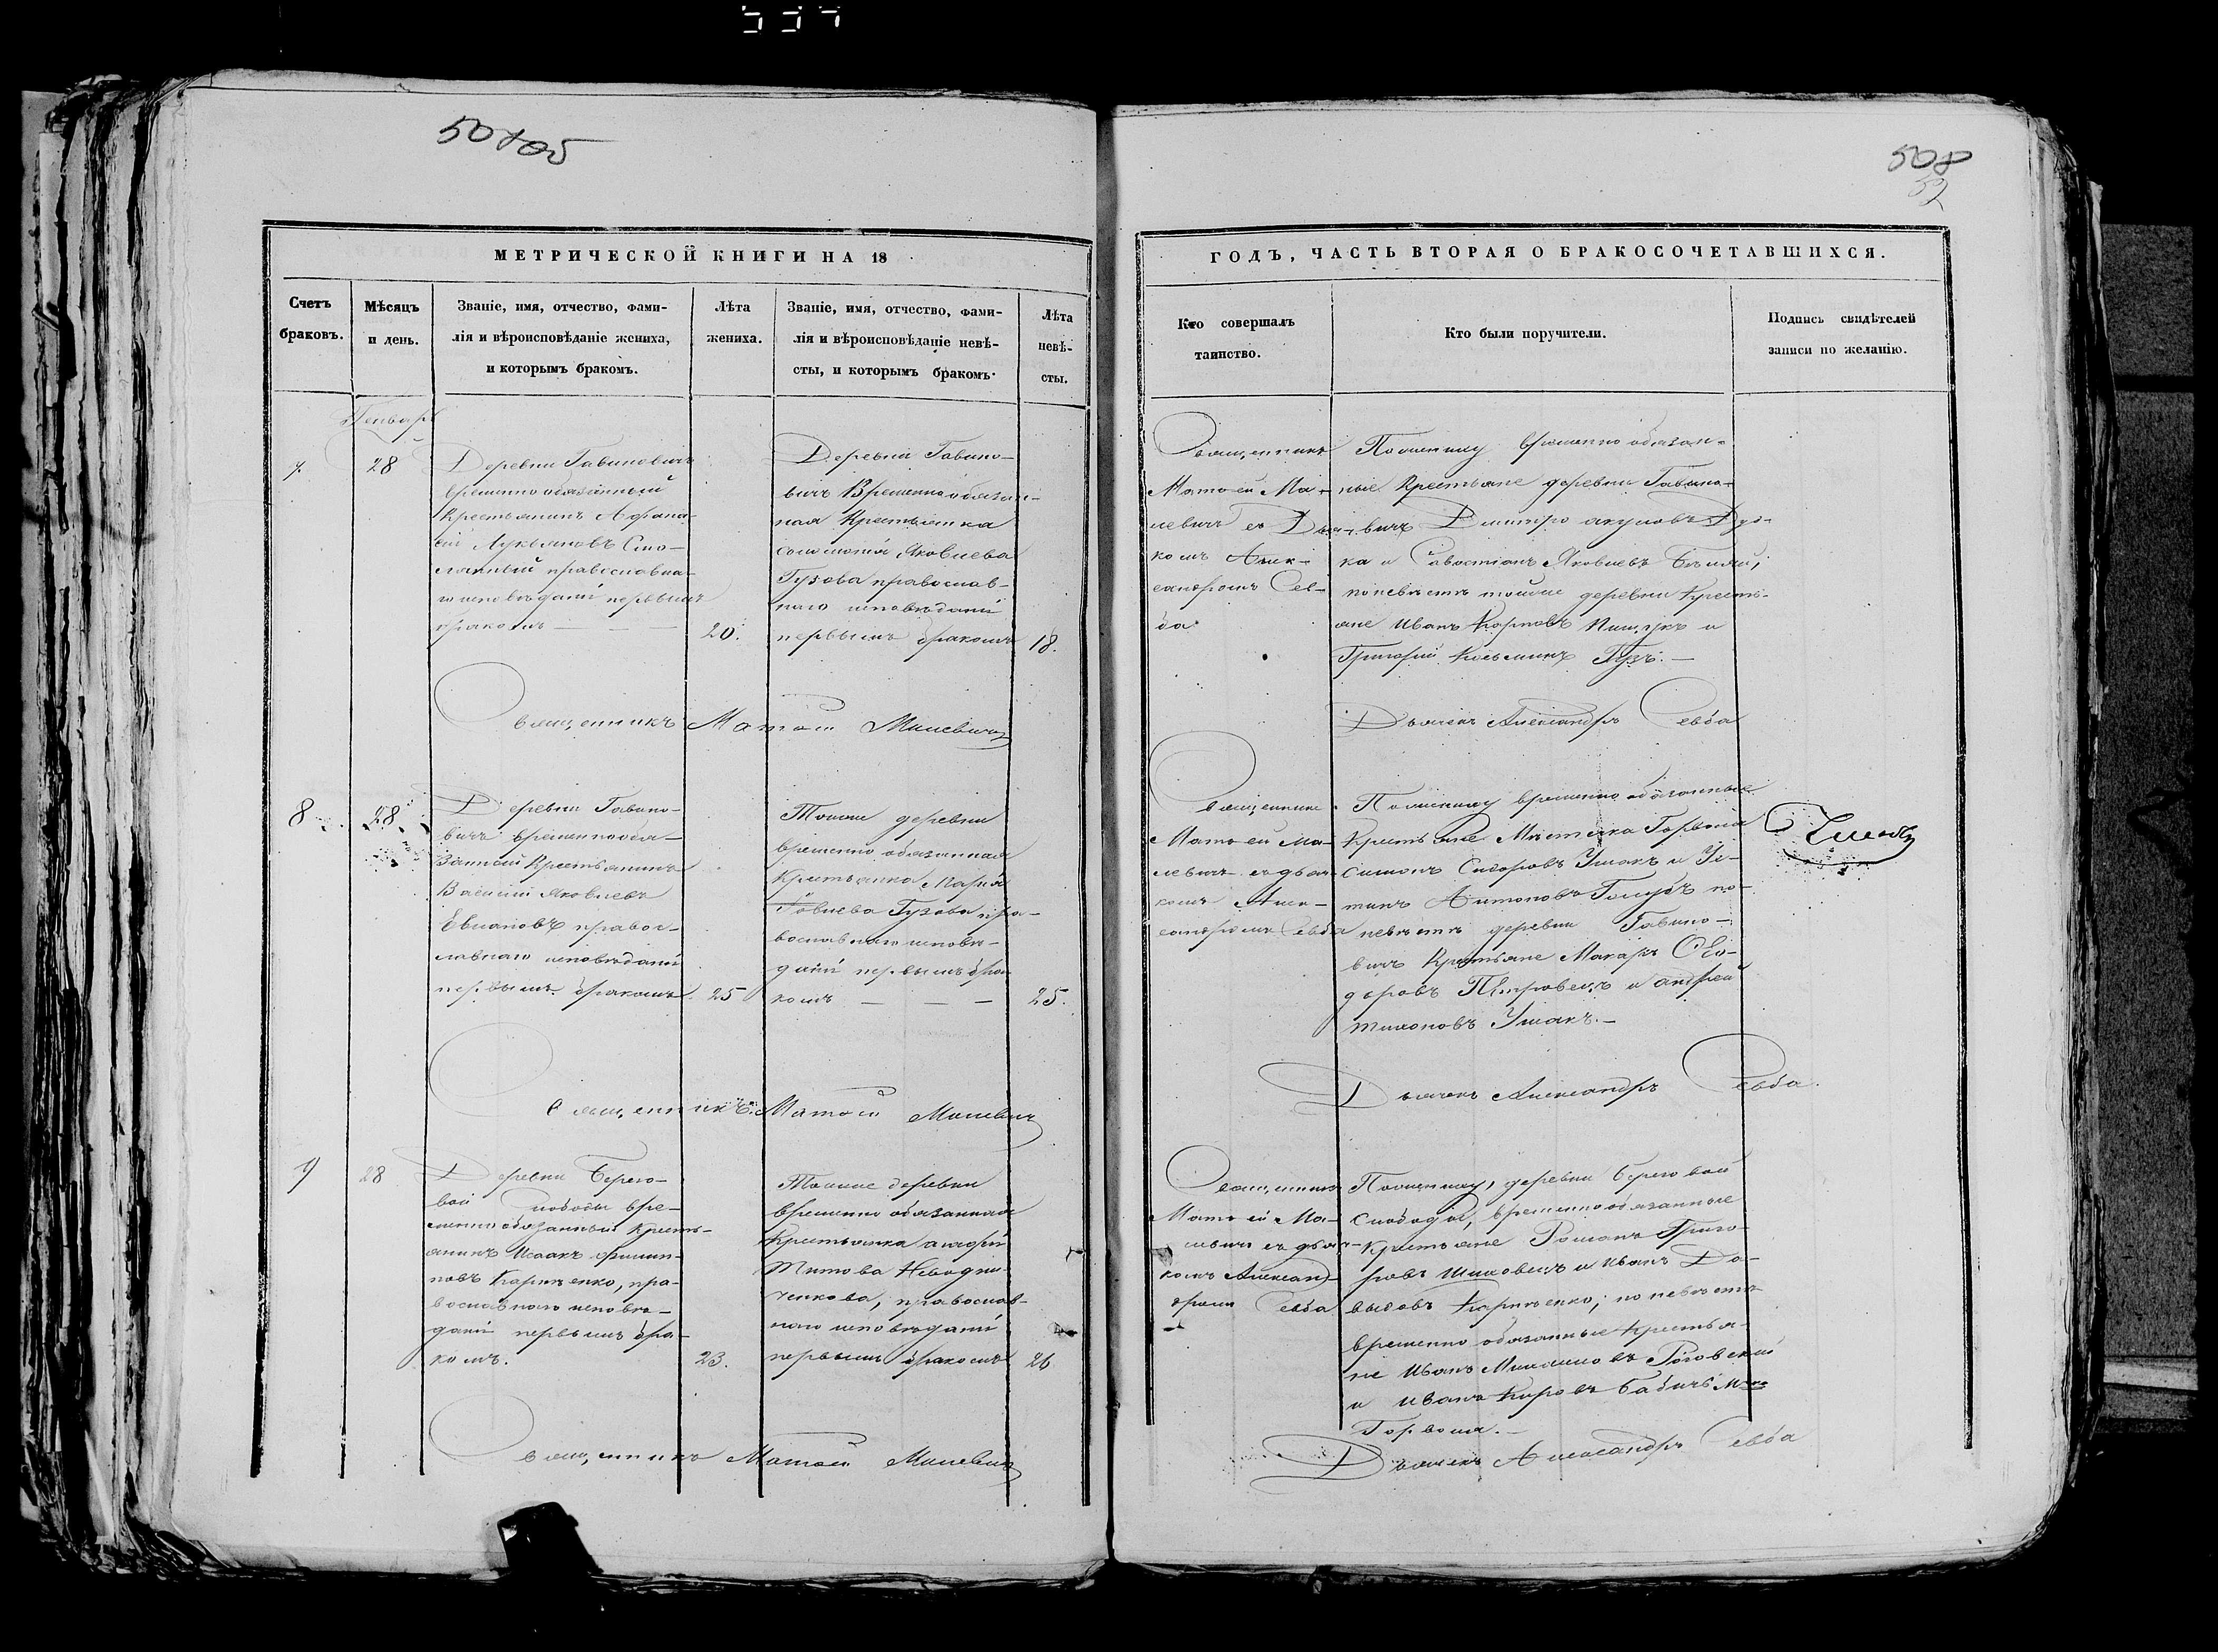 537
507об
508
52
МЕТРИЧЕСКОЙ КНИГИ НА 18
Счетъ
браковъ.
Мѣсяцъ
и день.
Званіе, имя, отчество, фами-
лія и вѣроисповѣданіе жениха,
и которымъ бракомъ.
Лѣта
жениха.
Званіе, имя, отчество, фами-
лія и вѣроисповѣданіе невѣ-
сты, и которымъ бракомъ.
Лѣта
невѣ-
сты.
ГОДЪ, ЧАСТЬ ВТОРАЯ О БРАКОСОЧЕТАВШИХСЯ.
Кто совершалъ
таинство.
Кто были поручители.
Подпись свидѣтелей
записи по желанію.
Генварь
7.
28
Деревни Гавиновичь
временно обязанный
Крестьянинъ Афана-
сій Лукьяновъ
православна-
го исповѣданія первымъ
бракомъ
20.
Деревни Гавино-
вичь Временно обязан-
ная Крестьянка
Соломонія Яковлева
Гузова православ-
наго исповѣданія
первымъ бракомъ
18.
Священникъ
Матѳей Ма-
левичъ съ Дья-
комъ Алек-
сандромъ Сев-
ба
По жениху временно обязан-
ные Крестьяне деревни Гавино-
вичь Дмитро Акуловъ
и Савостіанъ Яковлевъ
по невѣстѣ тойже деревни Кресть-
яне Иванъ Карповъ и
Григорій Косьминъ Гузъ.
Священникъ Матѳей Малевичъ
Дьячекъ Александръ Севба
8
28
Деревни Гавино-
вичь временно обя-
занный Крестьянинъ
Василій Яковлевъ
правос-
лавнаго исповѣданія
первымъ бракомъ
25
Тойже деревни
временно обязанная
Крестьянка Марія
Гузова пра-
вославнаго исповѣ-
данія первымъ бра-
комъ
25.
Священникъ
Матѳей Ма-
левичъ съ дья-
комъ Алек-
сандромъ Севба
По жениху временно обязанные
Крестьяне Мѣстечка Горволя
Симонъ Сидоровъ Ушакъ и Ус-
тинъ Антоновъ Голубъ по
невѣстѣ деревни Гавино-
вичь Крестьяне Макаръ Сѵо-
доровъ Петровецъ и Андрей
Тихоновъ Ушакъ.
Священникъ Матѳей Малевичъ
Дьячекъ Александръ Севба
9
28
Деревни Берего-
вой Слободы вре-
менно обязанный Кресть-
янинъ Исаакъ Филип-
повъ Карпенко, пра-
вославнаго исповѣ-
данія первымъ бра-
комъ.
23.
Тойже деревни
временно обязанная
Крестьянка
Титова
православ-
наго исповѣданія
первымъ бракомъ
26
Священникъ
Матѳей Ма-
левичъ съ дья-
комъ Александ-
ромъ Севба
По жениху, деревни Береговой
Слободы, временно обязанные
Крестьяне Романъ Григо-
ровъ и Иванъ Да-
выдовъ Карпенко; по невѣстѣ
временно обязанные Крестья-
не Иванъ Михайловъ Роговский
и Иванъ Кировъ Бабичь
Горволя.
Священникъ Матѳей Малевичъ
Дьячекъ Александръ Севба